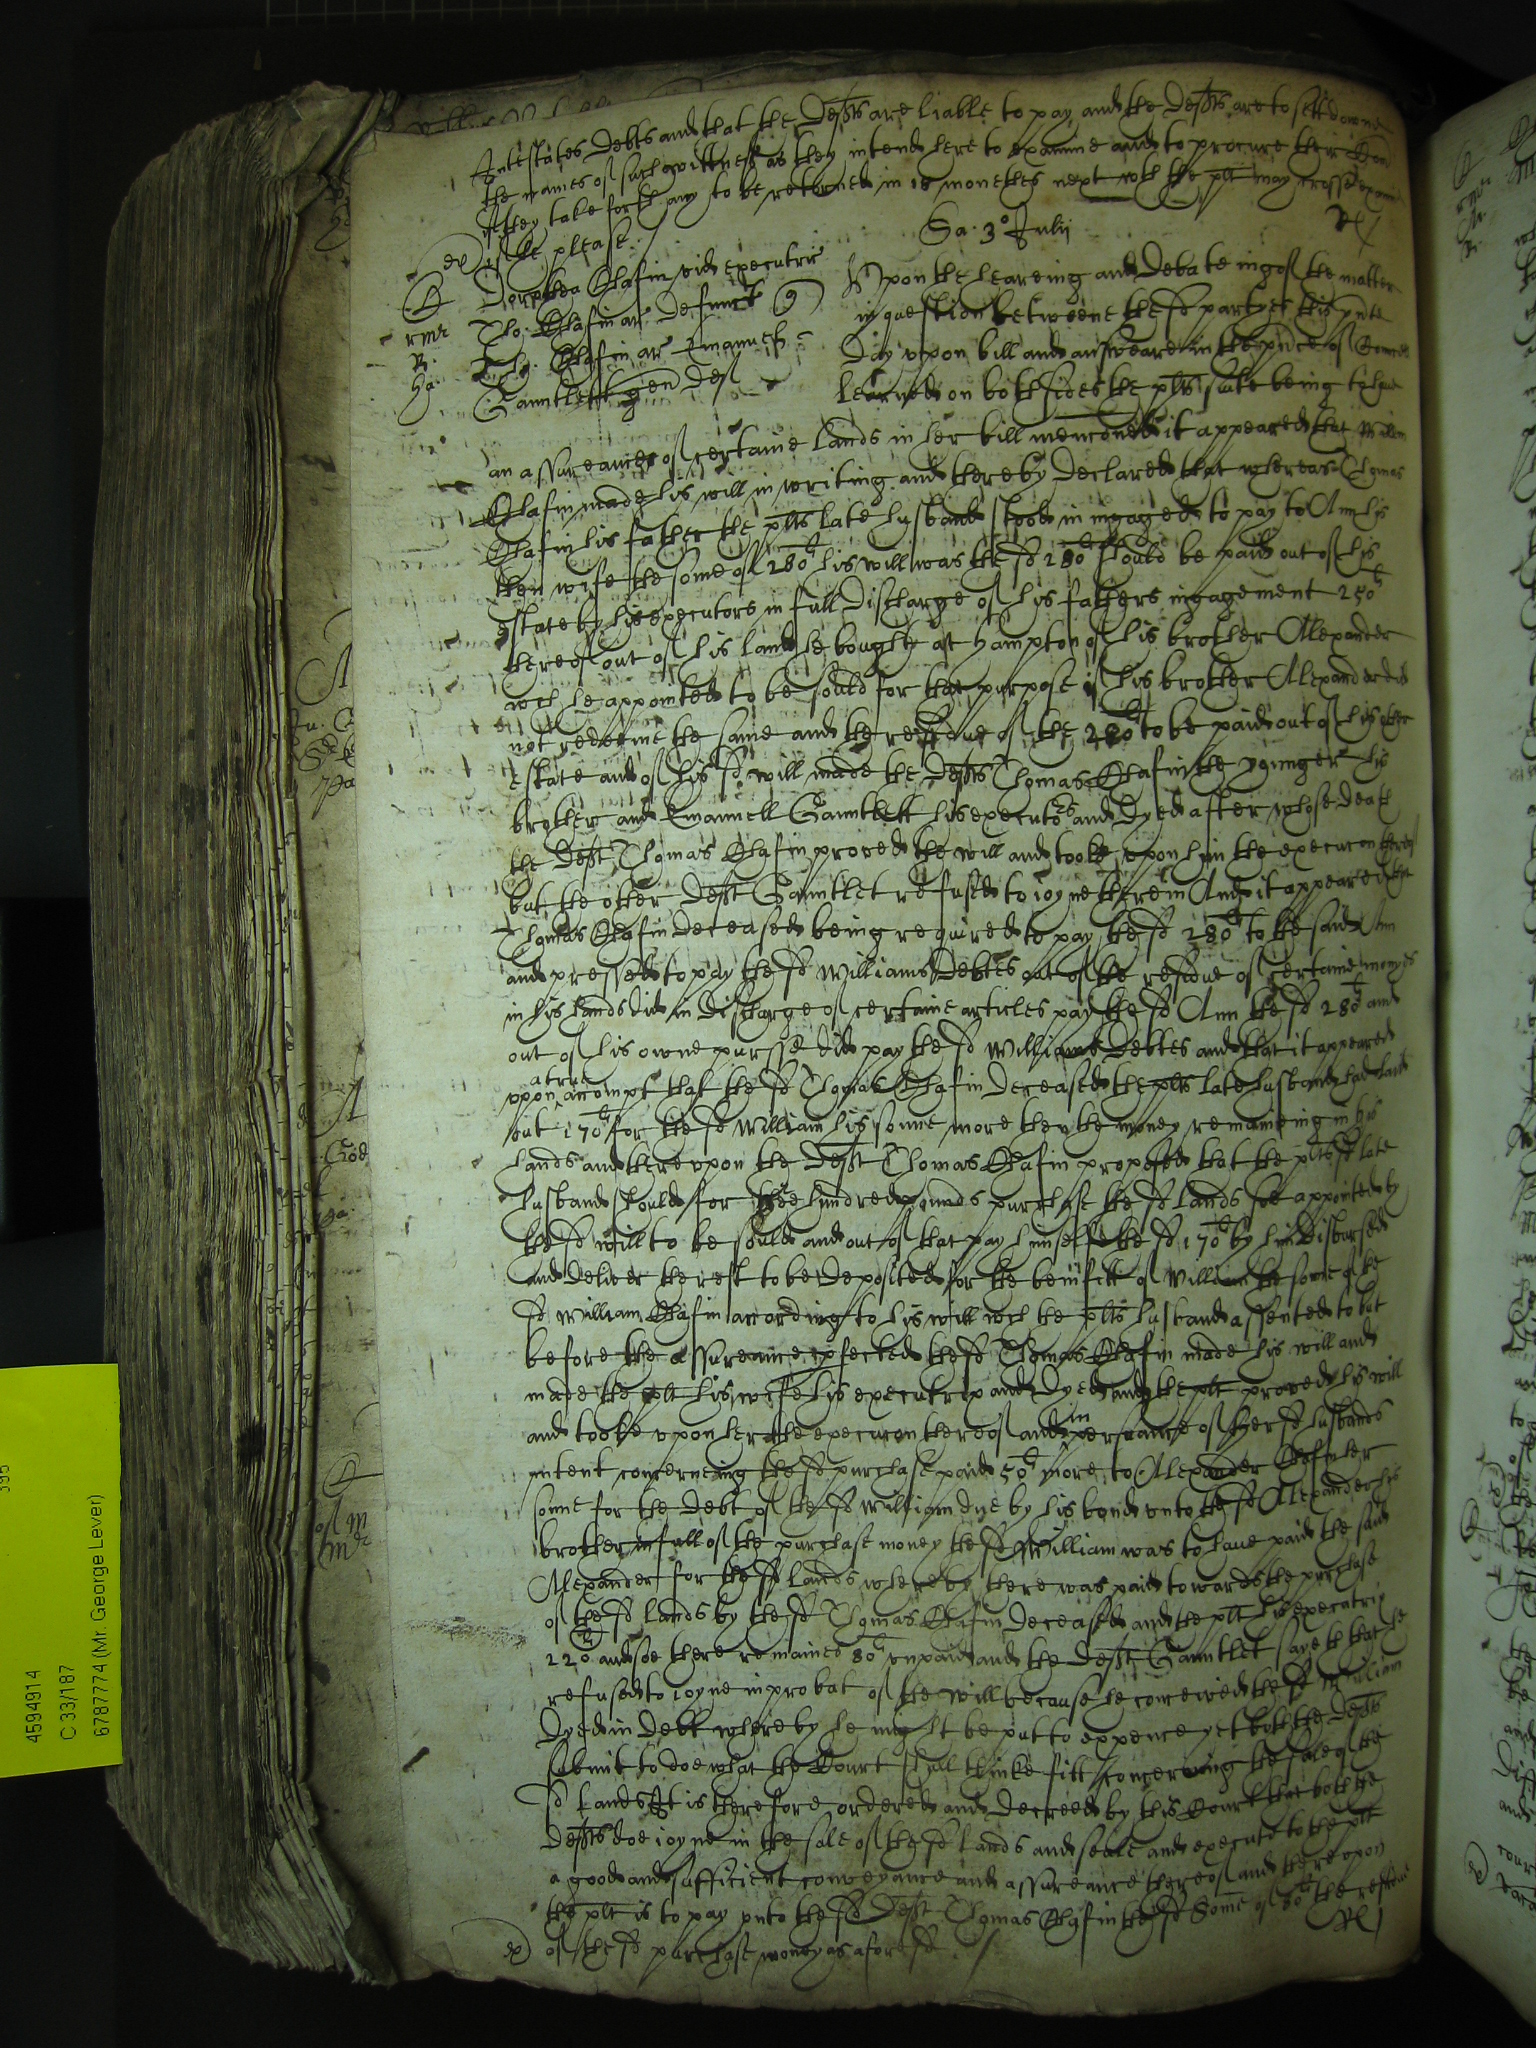 Intestates Debts and that the Defts are liable to pay, and the Defts are to sett downe
the names of such wittnesses as they intend here to examine and to procure their Comon
if they take forth any to be returned in 18 monethes next wch the plt may crosse examine
ex if he please /
Sa. 3º Julii
Rl /
Dorothea Chafin vid executrix
Tho: Chafin ar defunct Q
Tho. Chafin ar Emanuell
Gauntlett gen def
Vpon the heareing and Debateing of the matter
in question betweene the sd partyes this pnte
Day vpon bill and answeare in the pnce of Councell
learned on both sides the plts suite being to have
an assureance of certaine lands in her bill menconed it appeared that William
Chafin made his will in writing and thereby declared that whereas Thomas
Chafin his father the plts late husband stood ingaged to pay to Ann his
then wife the some of 280li his will was the sd 280li should be paid out of his
estate by his executors in full discharge of his fathers ingagement 250li
thereof out of his land he bought at Hampton of his brother Alexander
wch he appointed to be sould for that purpose if his brother Alexander did
not redeeme the same and the residue of the 280li to be paid out of his other
estate and of his sd will made the Defts Thomas Chafin the younger his
brother and Emanuell Gauntlett his executors and dyed after whose death
the Deft Thomas Chafin proved the will and tooke vpon him the execucon thereof
but the other Deft Gauntlet refused to ioyne therein And it appeared that
Thomas Chafin deceased being required to pay the sd 280li to the said Ann
and pressed to pay the sd Williams Debtes out of the residue of certaine moneyes
in his hands did in discharge of certaine articles pay the sd Ann the sd 280li and
out of his owne pursse did pay the sd Williams Debtes and that it appeared
vpon a true accompt that the sd Thomas Chafin deceased the plts late husband had laid
out 170li for the sd William his sonne more then the money remaineing in his
hands and therevpon the Deft Thomas Chafin proposed that the plts sd late
husband should for three hundred pounds purchase the sd lands soe appointed by
the sd will to be sould and out of that pay himselfe the sd 170li by him disbursed
and deliver the rest to be deposited for the benifitt of William the sonne of the
sd William Chafin according to his will wch the plts husband assented to but
before the assureance pfected the sd Thomas Chafin made his will and
made the plt his wife his executrix and dyed and the plt proved his will
and tooke vpon her the execucon thereof and in persuance of her sd husbands
intent concerneing the sd purchase paid 50li more to Alexander Chafin her
sonne for the debt of the sd William due by his bond vnto the sd Alexander his
brother in full of the purchase money the sd William was to have paid the said
Alexander for the sd lands whereby there was paid towards the purchase
of the sd lands by the sd Thomas Chafin deceased and the plt his executrix
220li and soe there remaines 80li vnpaid and the Deft Gauntlet sayeth that he
refused to ioyne in probat of the will because he conceived the sd William
dyed in debt whereby he might be put to expence yet both the Defts
submit to doe what the Court shall thinke fitt concerning the sale of the
sd lands It is therefore ordered and decreed by this Court that both the
Defts doe ioyne in the sale of the sd lands and seale and execute to the plt
a good and sufficient conveyance and assureance thereof and therevpon
the plt is to pay vnto the sd Deft Thomas Chafin the sd some of 80li the residue
ex of the sd purchase money as aforesd /
Rl /
4594914
C 33/187
6787774 (Mr. George Lever)